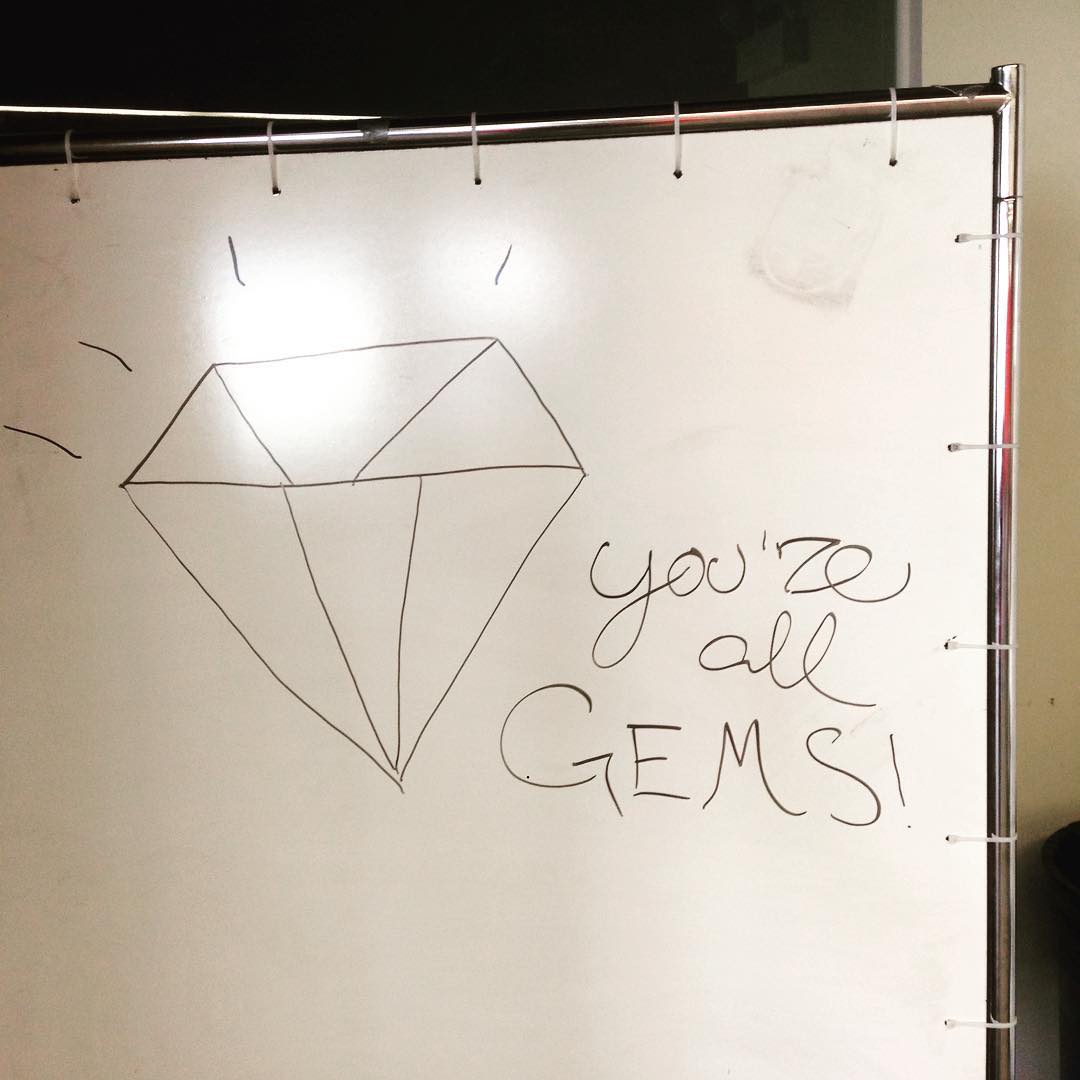 you're
all
GEMS!